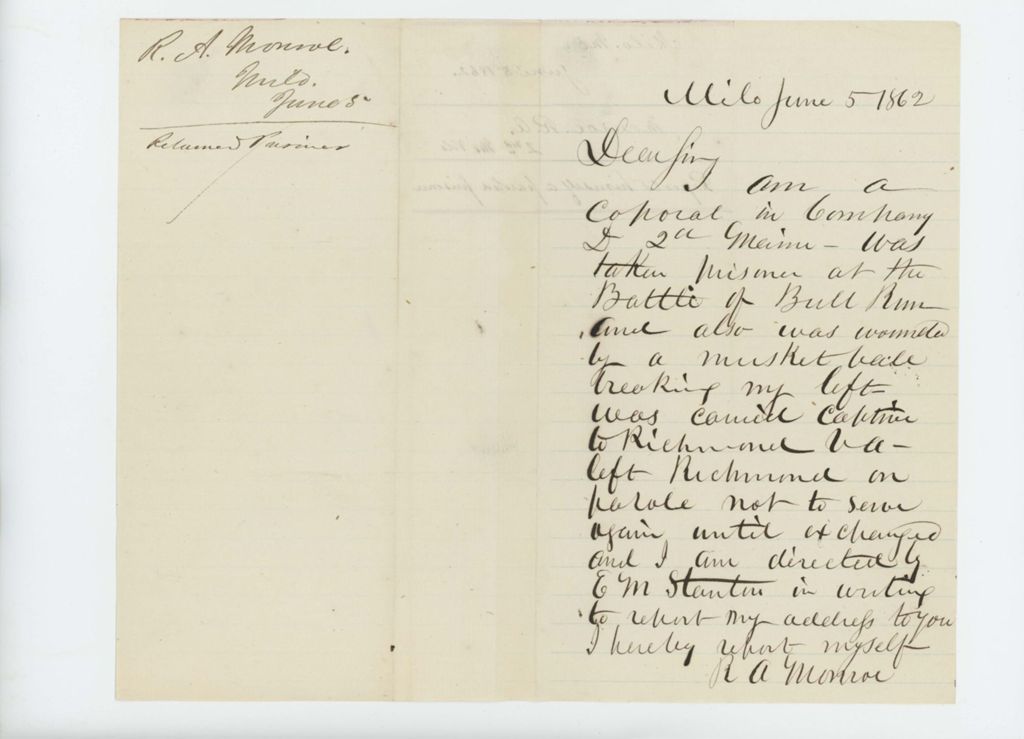 R. A. Monroe.
Milo.
June 5
Returned Prisoner
Milo June 5 1862
Dear Sir,
I am a
Coporal in Company
D 2d Maine - was
taken prisoner at the
Battle of Bull Run
and also was wounded
by a musket ball
breaking my left
was carried captive
to Richmond Va -
left Richmond on
parole not to serve
again until exchanged
and I am directed by
E M Stanton in writing
to report my address to you
I hereby report myself
R A Monroe